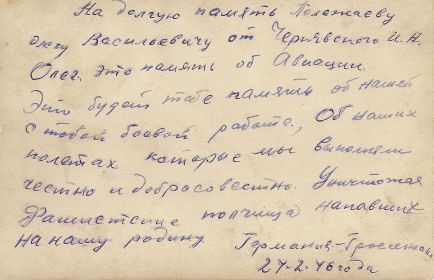 На долгую память Полежаеву
Олегу Васильевичу от Чернявского И.Н.
Олег. Это память об Авиации.
Это будет тебе память об нашей
с тобой боевой работе, Об наших
полетах которые мы выполняли
честно и добросовестно. Уничтожая
Фашистские полчища напавших
на нашу родину.
Германия-
27-2-46 года